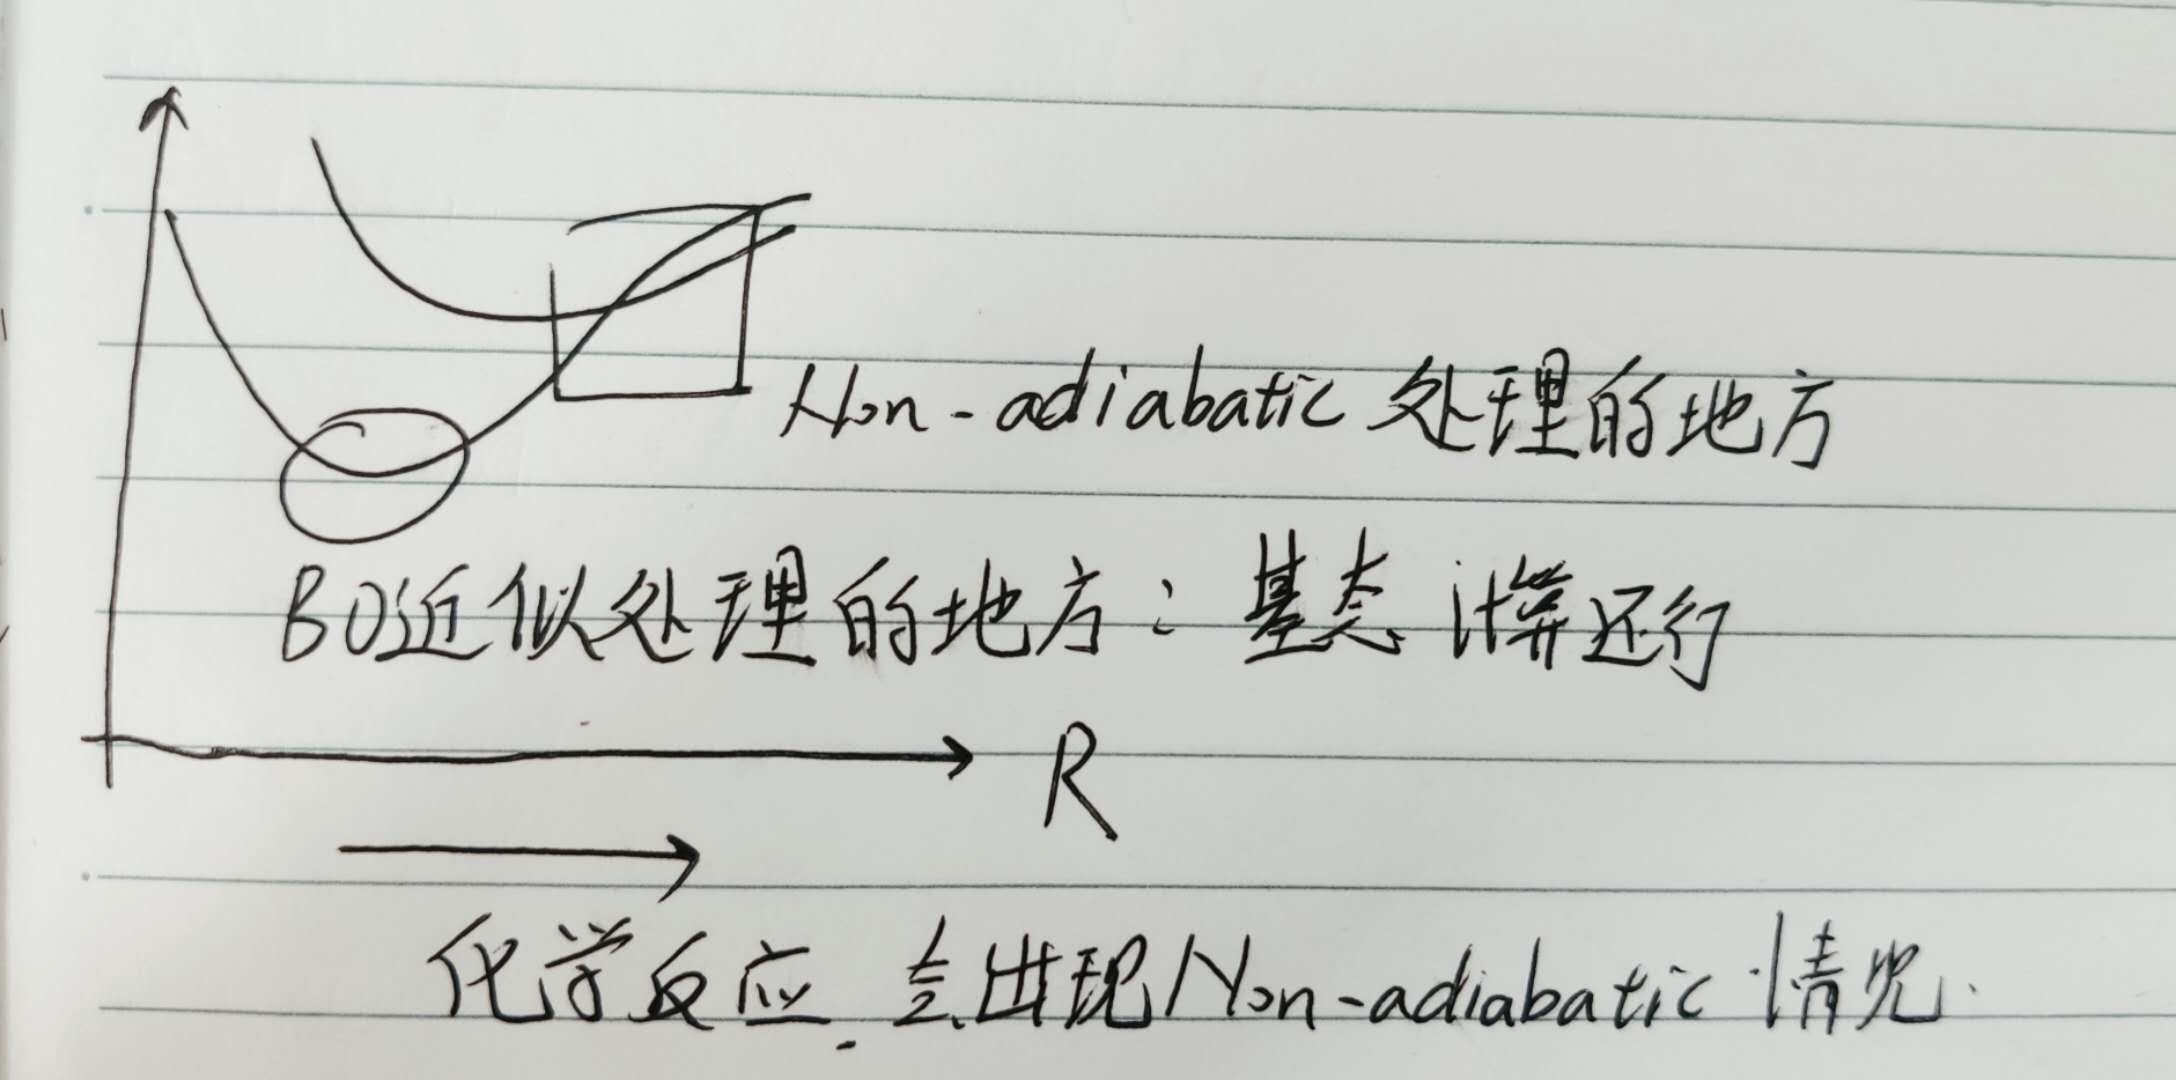 Non-adiabatic 处理的地方
BO近似处理的地方：基态 计算还行
R
化学反应.会出现Non-adiabatic 情况.